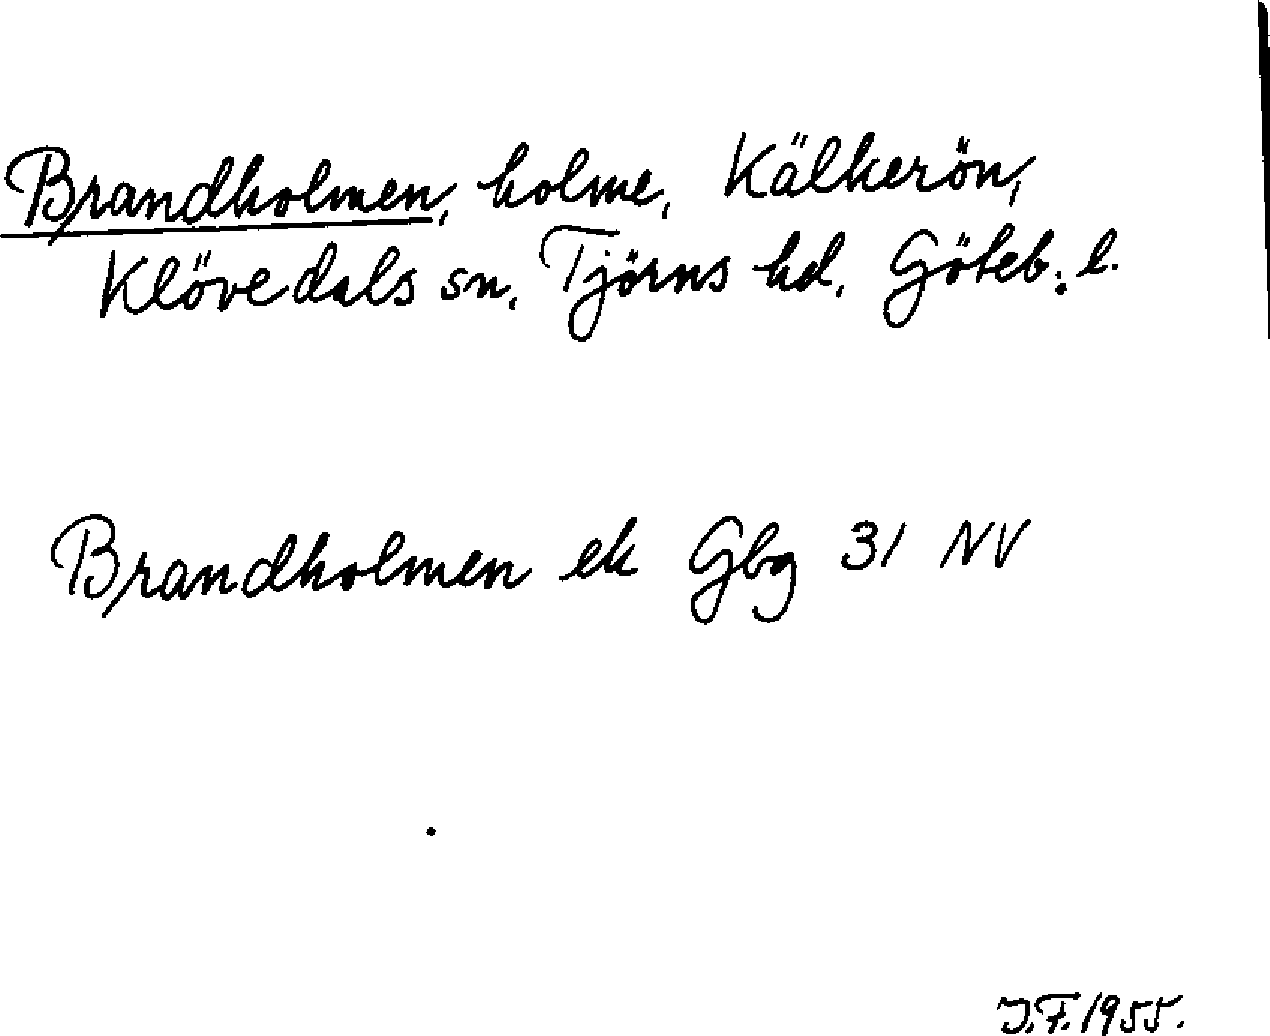 Brandholmen, holme, Kälkerön,
Klövedals sn, Tjörns hd, Göteb. l.
Brandholmen ek Gbg 31 NV
J.F. 1955.